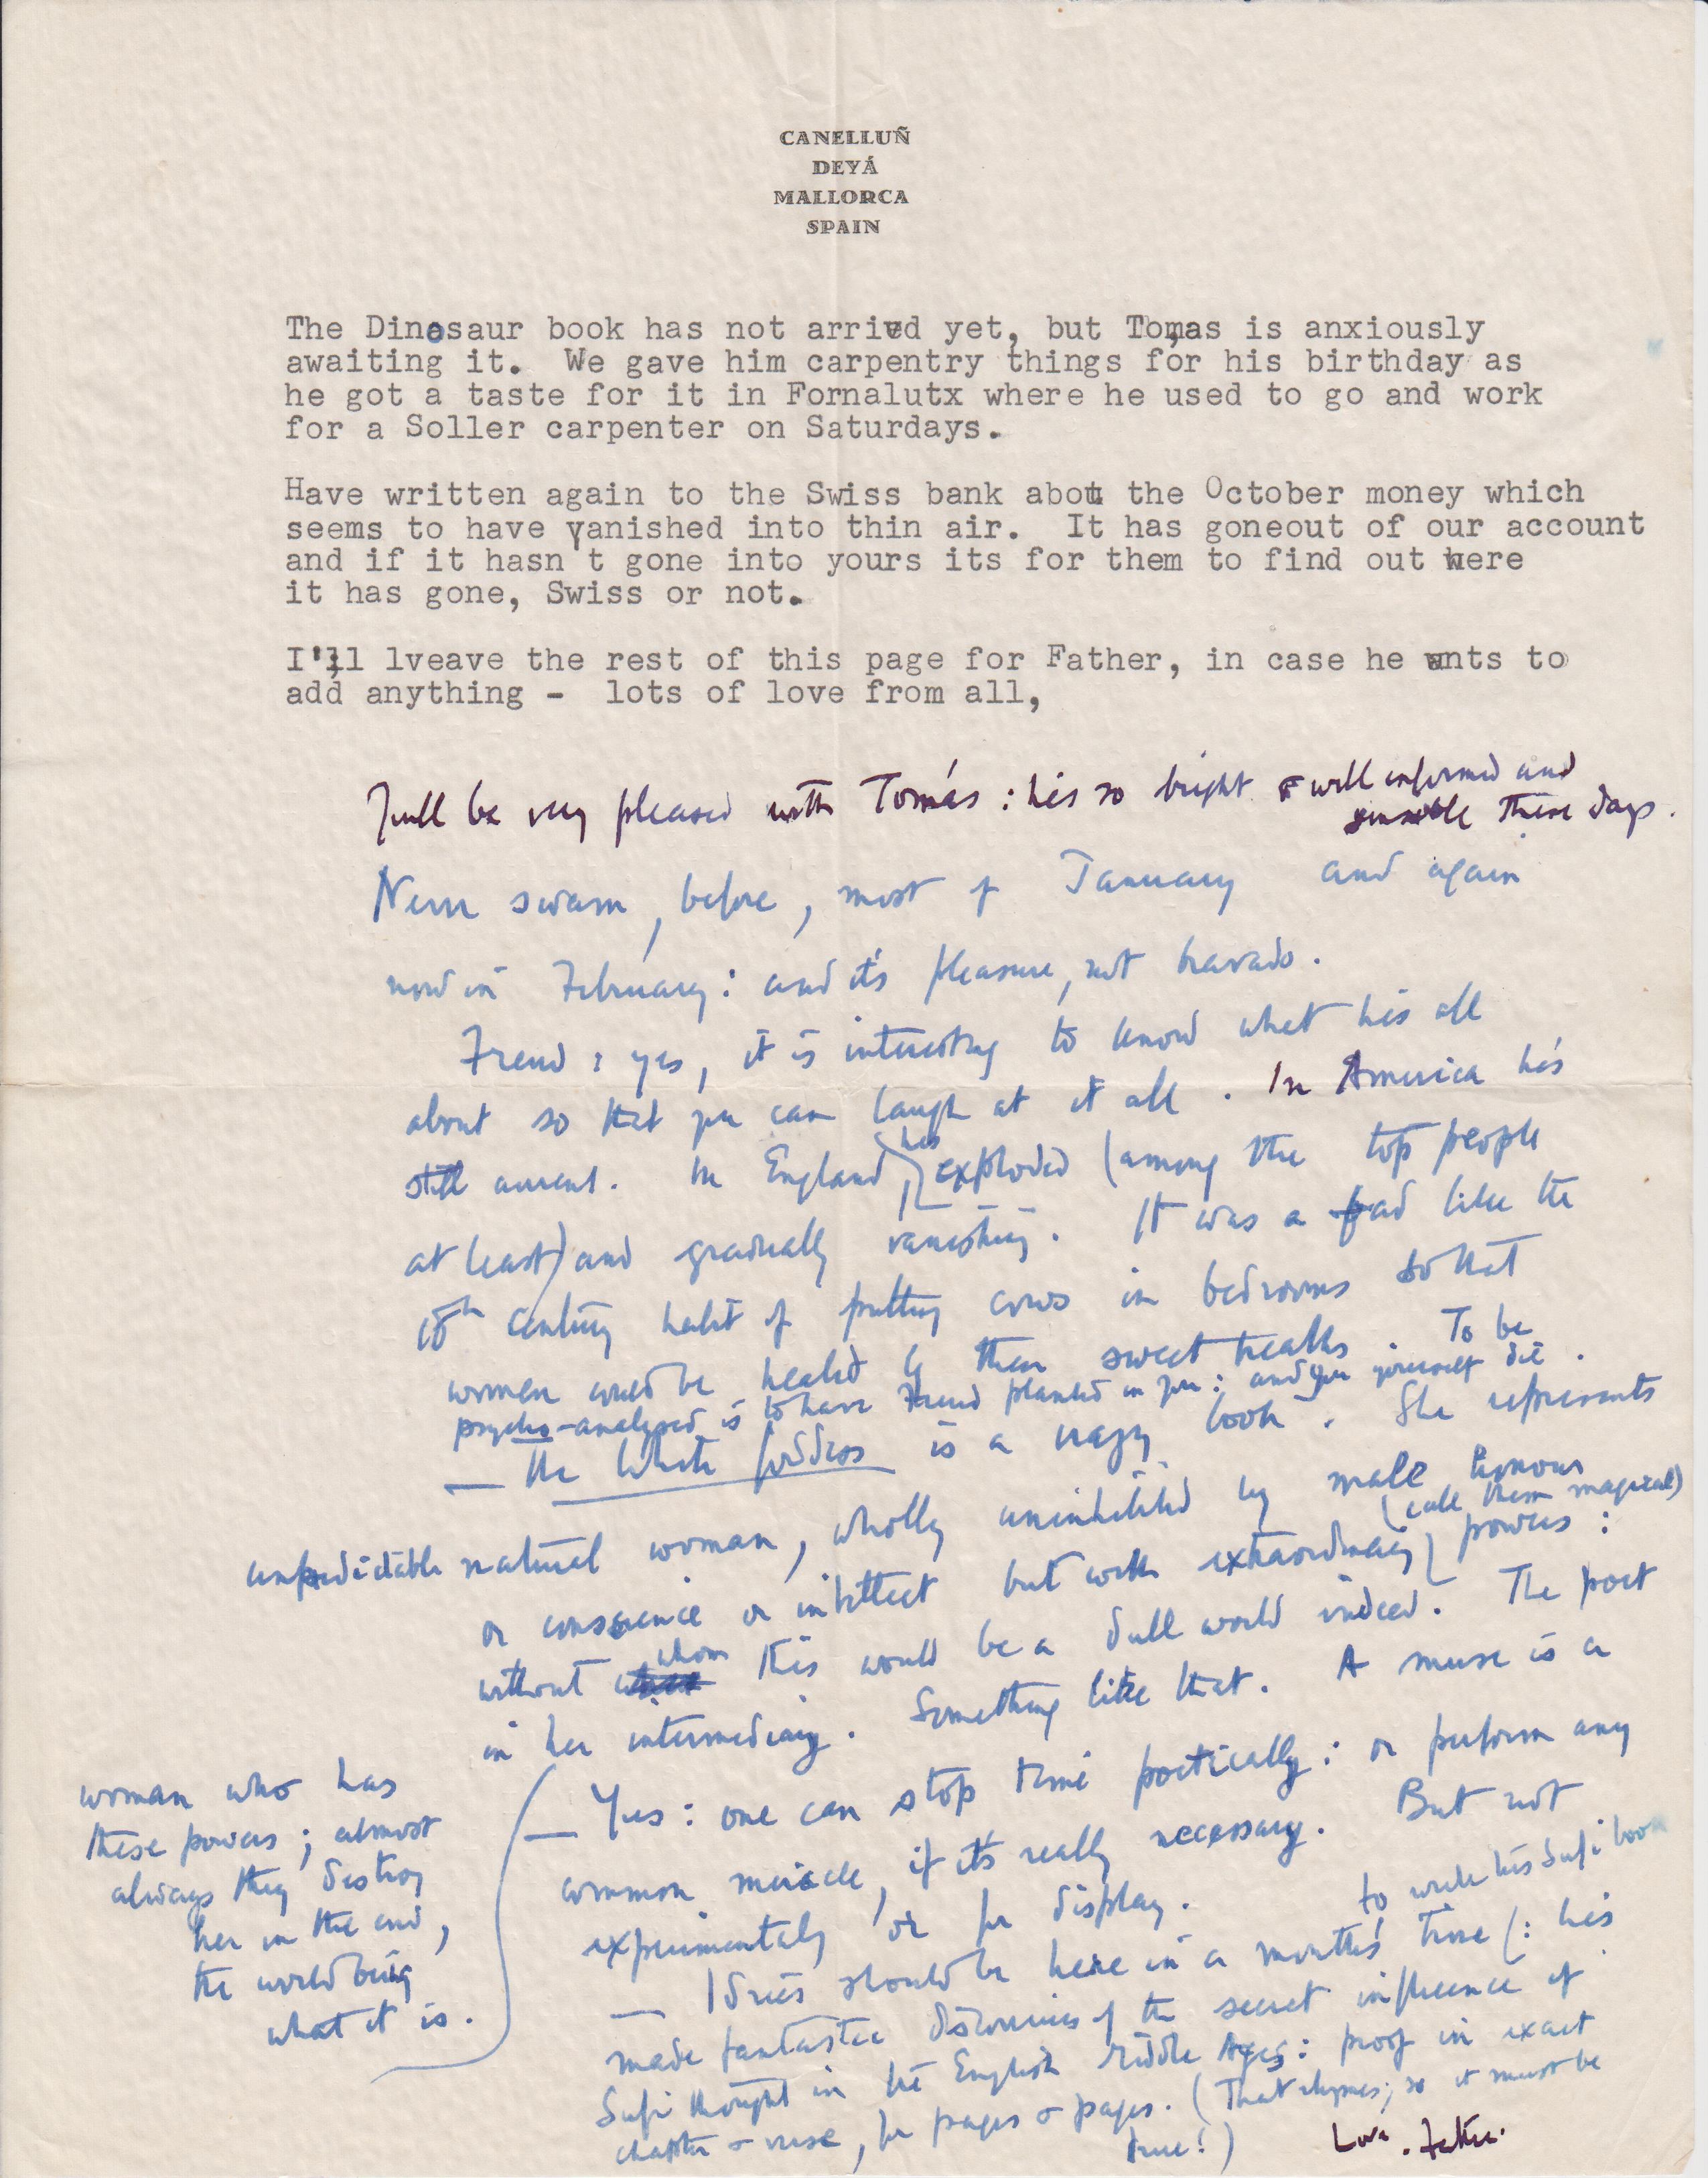 CANELLUÑ
DEYÁ
MALLORCA
SPAIN
The Dinosaur book has not arrived yet, but Tomas is anxiously
awaiting it. We gave him carpentry things for his birthday as
he got a taste for it in Fornalutx where he used to go and work
for a Soller carpenter on Saturdays.
Have written again to the Swiss bank about the October money which
seems to have vanished into thin air. It has goneout of our account
and if it hasn't gone into yours its for them to find out were
it has gone, Swiss or not.
I'll lveave the rest of this page for Father, in case he wnts to
add anything - lots of love from all,
be very pleased with Tomás : he's so bright & well informed and
sensible these days.
Never swam, before, most of January and again
now in February: and it's pleasure, not bravado.
Freud : yes, it is interesting to know what he's all
about so that you can laugh at it all. In America he's
still current. In England, he's exploded (among the top people
at least) and gradually vanishing. It was a fad like the
18th century habit of putting cows in bedrooms so that
women would be healed by their sweet breaths. To be
psycho-analysed is to have Freud planted in you: and you yourself die.
— The White Goddess is a crazy book. She represents
unpredictable natural woman, wholly uninhibited by male
or conscience or intellect but with extraordinary (call them magical) powers:
without whom this would be a dull world indeed. The poet
is her intermediary. Something like that. A muse is a
woman who has
these powers; almost
always they destroy
her in the end,
the world being
what it is.
— Yes: one can stop time poetically: or perform any
common miracle, if it's really necessary. But not
experimentally or for display.
— Idries should be here in a month's time to write his Sufi book: he's
made fantastic discoveries of the secret influence of
Sufi thought in the English Middle Ages: proof in exact
chapter & verse, for pages & pages. (That rhymes; so it must be
true!)
Love. Father.